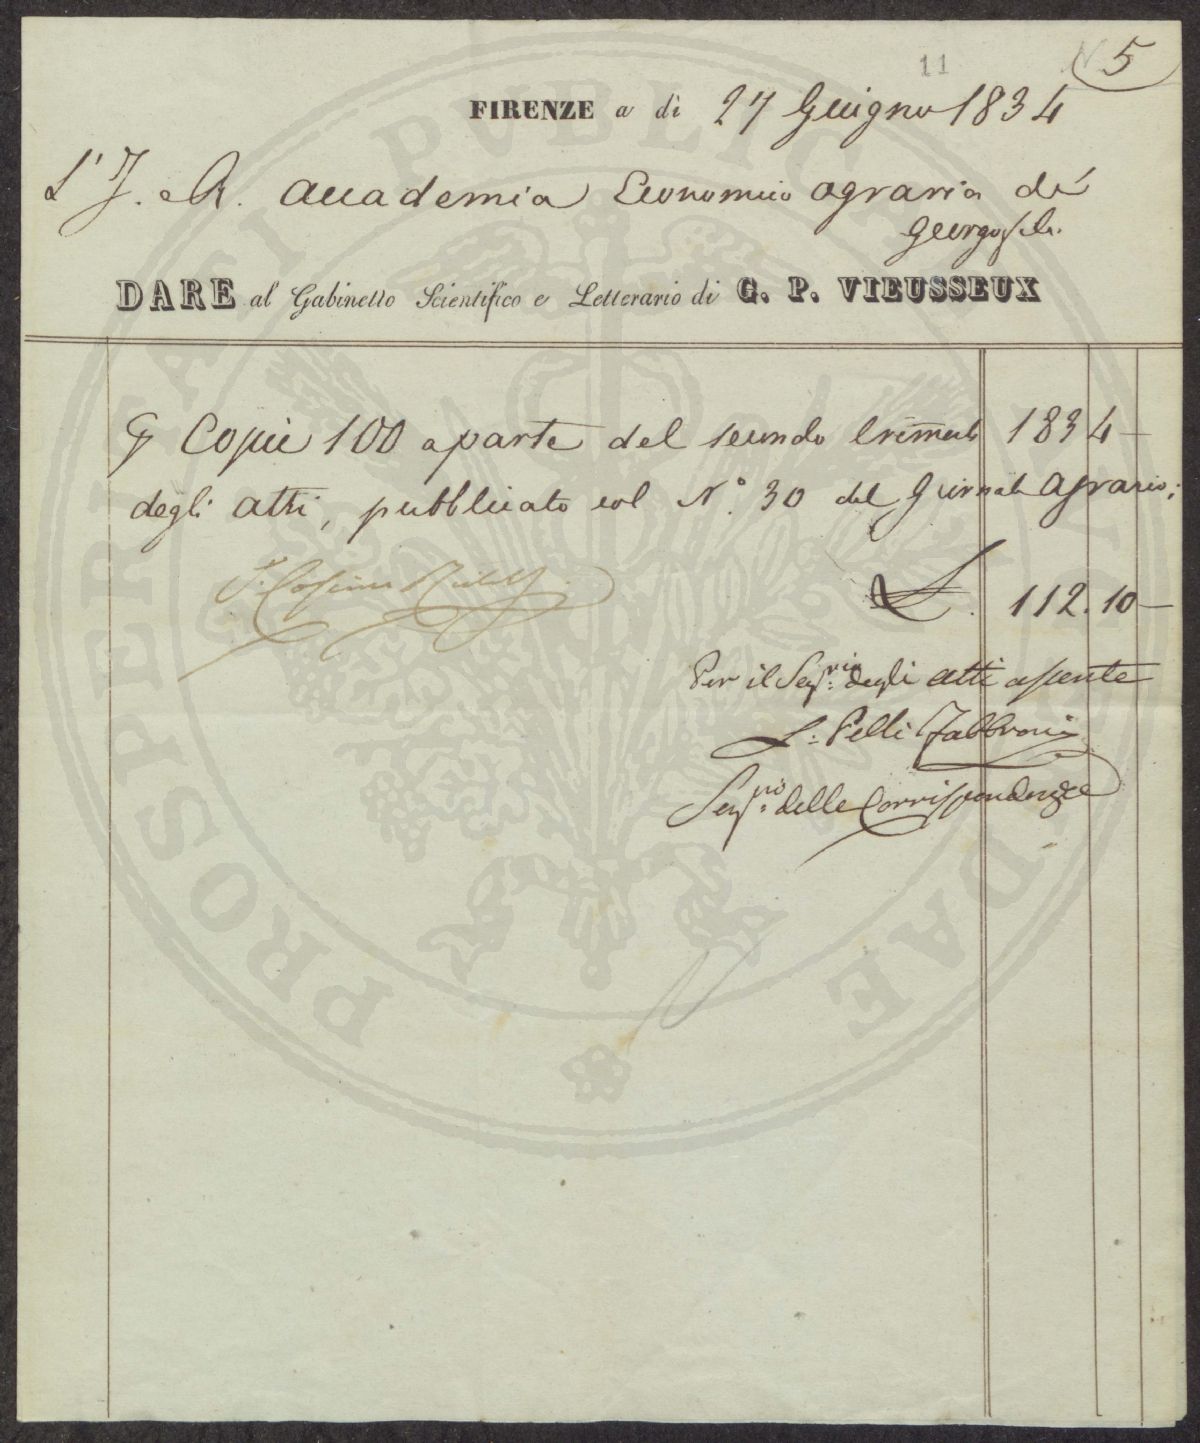 11
N 5
FIRENZE a dì 27 Giugno 1834
L'I. e R. Accademia Economico agraria de'
Georgofili.
DARE al Gabinetto Scientifico e Letterario di G. P. VIEUSSEUX
Copie 100 a parte del secondo trimestre 1834 —
degli atti, pubblicato col N.° 30 del Giornale Agrario;
L. 112.10 —
Cosimo Ridolfi
Per il Seg.rio degli Atti assente
L: Pelli Fabbroni
Seg.rio delle Corrispondenze
PROSPERITATI PUBLICAE AUGENDAE